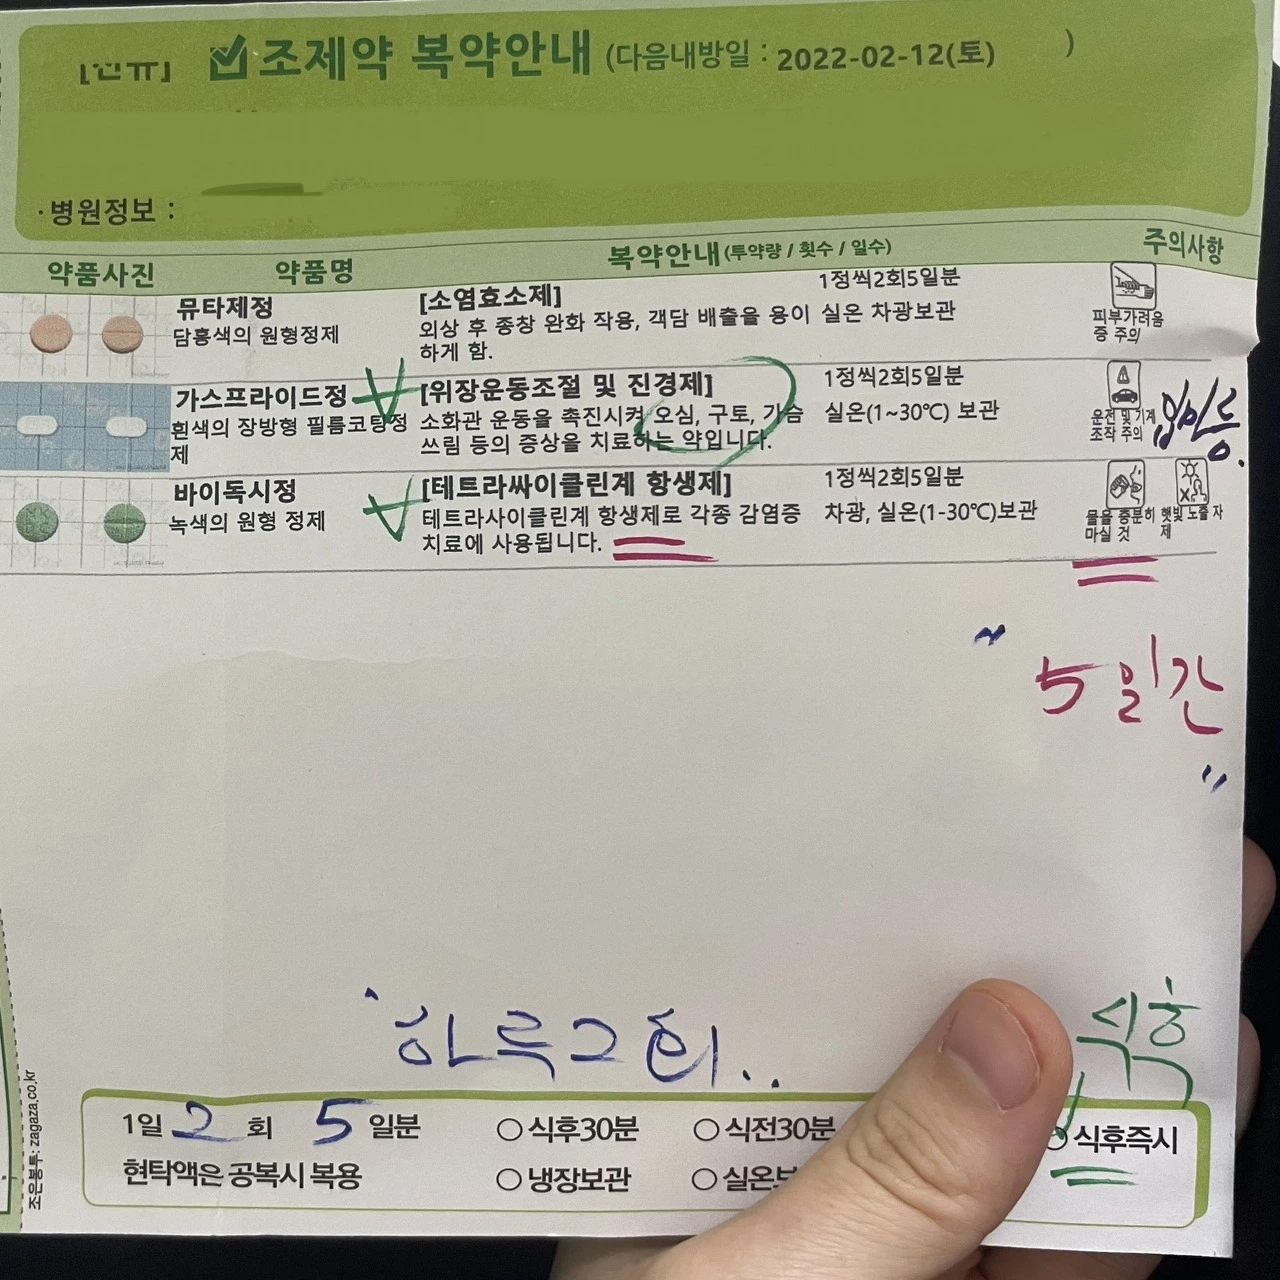 조제약 복약안내 (다음내방일 : 2022-02-12(토) )
· 병원정보 :
약품사진 약품명 복약안내(투약량 / 횟수 / 일수) 주의사항
뮤타제정
담홍색의 원형정제
[소염효소제]
외상 후 종창 완화 작용, 객담 배출을 용이
하게 함.
1정씩2회5일분
실온 차광보관
피부가려움
증 주의
가스프라이드정
흰색의 장방형 필름코팅정
제
[위장운동조절 및 진경제]
소화관 운동을 촉진시켜 오심, 구토, 가슴
쓰림 등의 증상을 치료하는 약입니다.
1정씩2회5일분
실온(1~30℃) 보관
운전 및 기계
조작 주의
바이독시정
녹색의 원형 정제
[테트라싸이클린계 항생제]
테트라사이클린계 항생제로 각종 감염증
치료에 사용됩니다.
1정씩2회5일분
차광, 실온(1-30℃)보관
물을 충분히
마실 것
햇빛 노출 자
제
" 5일간 "
하루2회..
식후
1일 2 회 5 일분
현탁액은 공복시 복용
○ 식후30분 ○ 식전30분 식후즉시
○ 냉장보관 ○ 실온보
조은봉투: zagaza.co.kr